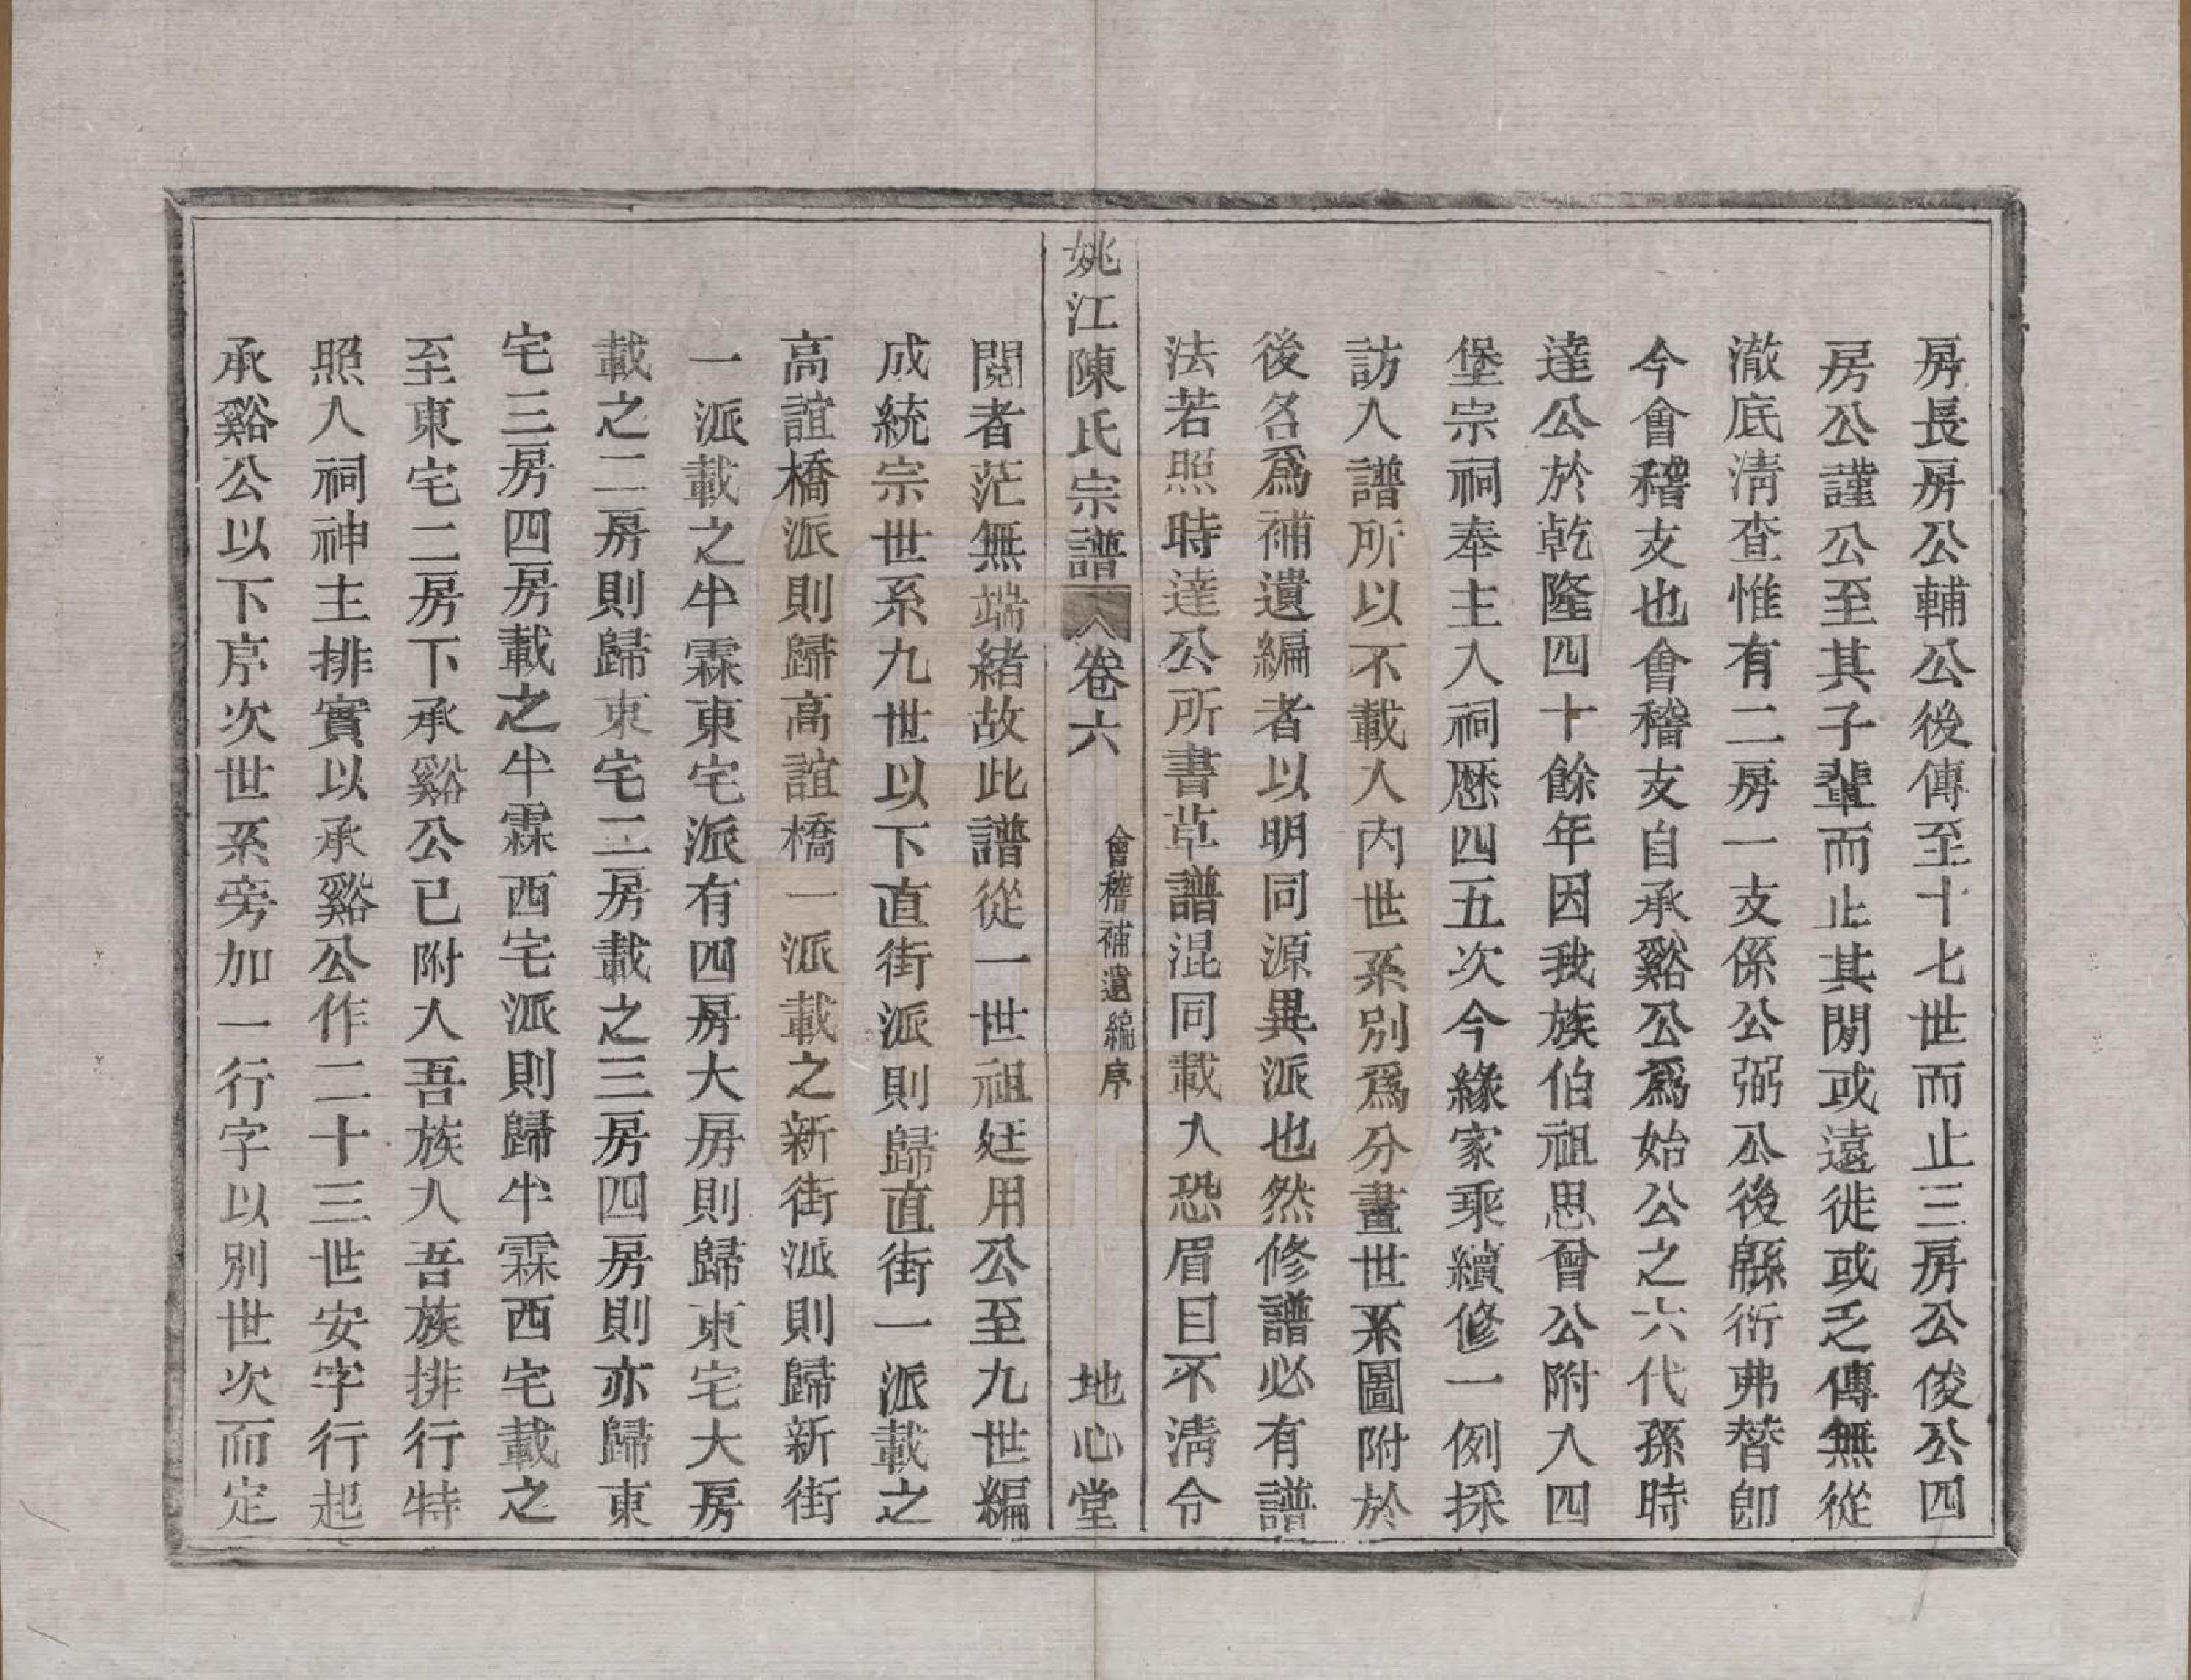 房長房公輔公後傳至十七世而止三房公俊公四
房公謹公至其子輩而止其閒或遠徙或乏傳無從
澈底淸查惟有二房一支係公弼公後緜衍弗替卽
今會稽支也會稽支自承谿公爲始公之六代孫時
達公於乾隆四十餘年因我族伯祖思曾公附入四
堡宗祠奉主入祠歷四五次今緣家乘續修一例採
訪入譜所以不載入內世系別爲分畫世系圖附於
後名爲補遺編者以明同源異派也然修譜必有譜
法若照時達公所書草譜混同載入恐眉目不淸令
姚江陳氏宗譜 卷六 會稽補遺編序 地心堂
閱者茫無端緒故此譜從一世祖廷用公至九世編
成統宗世系九世以下直街派則歸直街一派載之
高誼橋派則歸高誼橋一派載之新街派則歸新街
一派載之牛霖東宅派有四房大房則歸東宅大房
載之二房則歸東宅二房載之三房四房則亦歸東
宅三房四房載之牛霖西宅派則歸牛霖西宅載之
至東宅二房下承谿公已附入吾族入吾族排行特
照入祠神主排實以承谿公作二十三世安字行起
承谿公以下序次世系旁加一行字以別世次而定